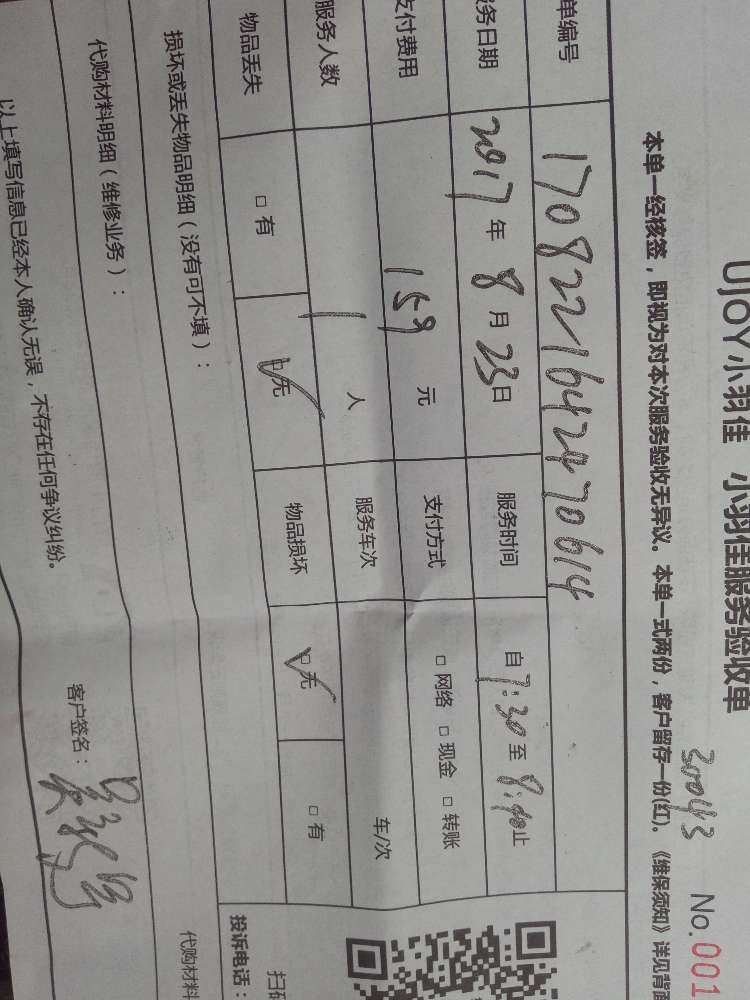 UJOY小羽佳 小羽佳服务验收单
30043 No.001
本单一经核签，即视为对本次服务验收无异议。本单一式两份，客户留存一份(红)。《维保须知》详见背面
单编号 170822164247064
务日期 2017 年 8 月 23 日 服务时间 自 7:30 至 8:40 止
支付费用 159 元 支付方式 □ 网络 □ 现金 □ 转账
服务人数 1 人 服务车次 车/次
物品丢失 □ 有 □ 无 物品损坏 □ 无 □ 有
损坏或丢失物品明细（没有可不填）：
代购材料明细（维修业务）： 代购材料
以上填写信息已经本人确认无误，不存在任何争议纠纷。 客户签名：
投诉电话：
扫